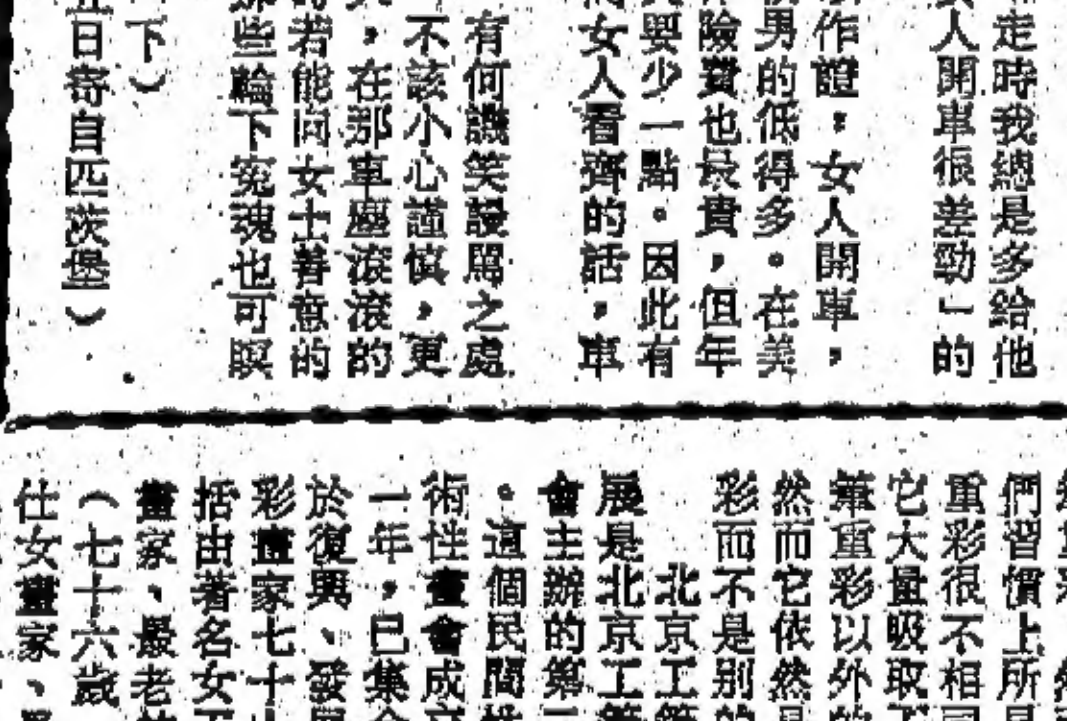 走時我總是多給他
人開車很差勁」的
作證，女人開車，
男的低得多。在美
險費也最貴，但年
要少一點。因此有
女人看齊的話，車
有何譏笑謾罵之處
不該小心謹慎，更
，在那車塵滾滾的
若能因女士着意的
些輪下冤魂也可瞑
下）
日寄自匹茨堡）
們習慣上所
重彩很不相
它大量吸取
筆重彩以外
然而它依然
彩而不是别
北京工筆
展是北京工筆
會主辦的第二
。這個民間
術性畫會成立
一年，已集
於復興、發
彩畫家七十
括由著名女
畫家、最老
（七十六歲
仕女畫家、